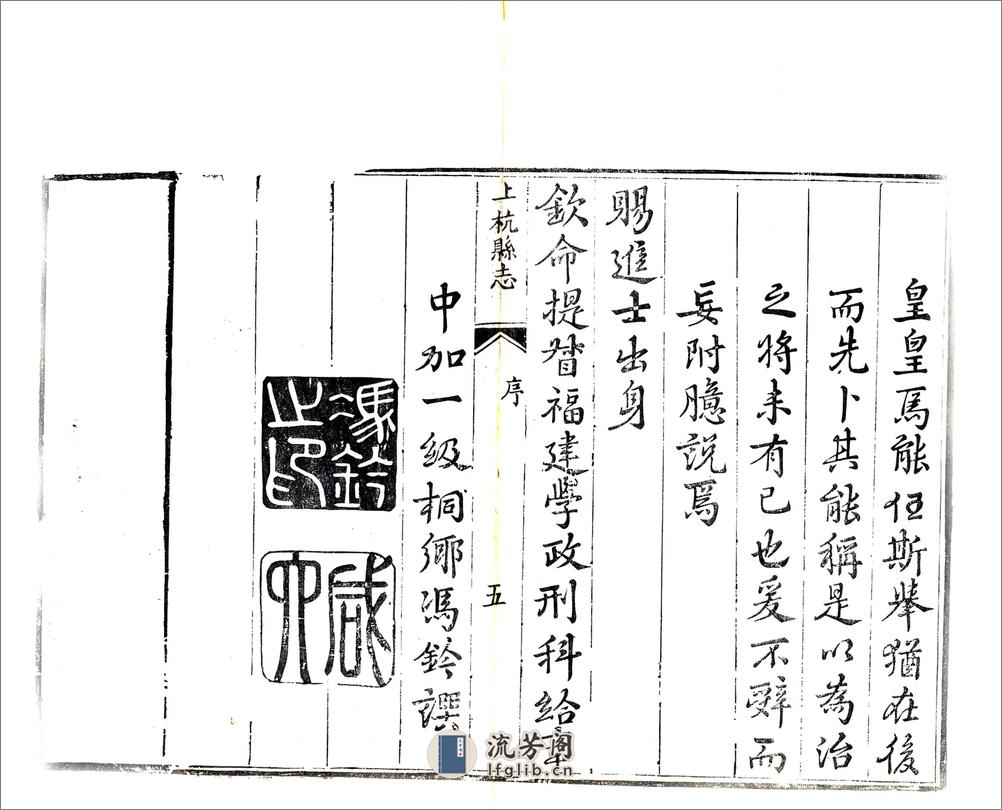 皇皇焉能任斯舉猶在後
而先卜其能稱是以為治
之將来有已也爰不辭而
妄附臆説焉
賜進士出身
欽命提督福建學政刑科給事
上杭縣志
序
五
中加一級桐鄉馮鈐譔
馮鈐之印
咸六
流芳阁
lfglib.cn